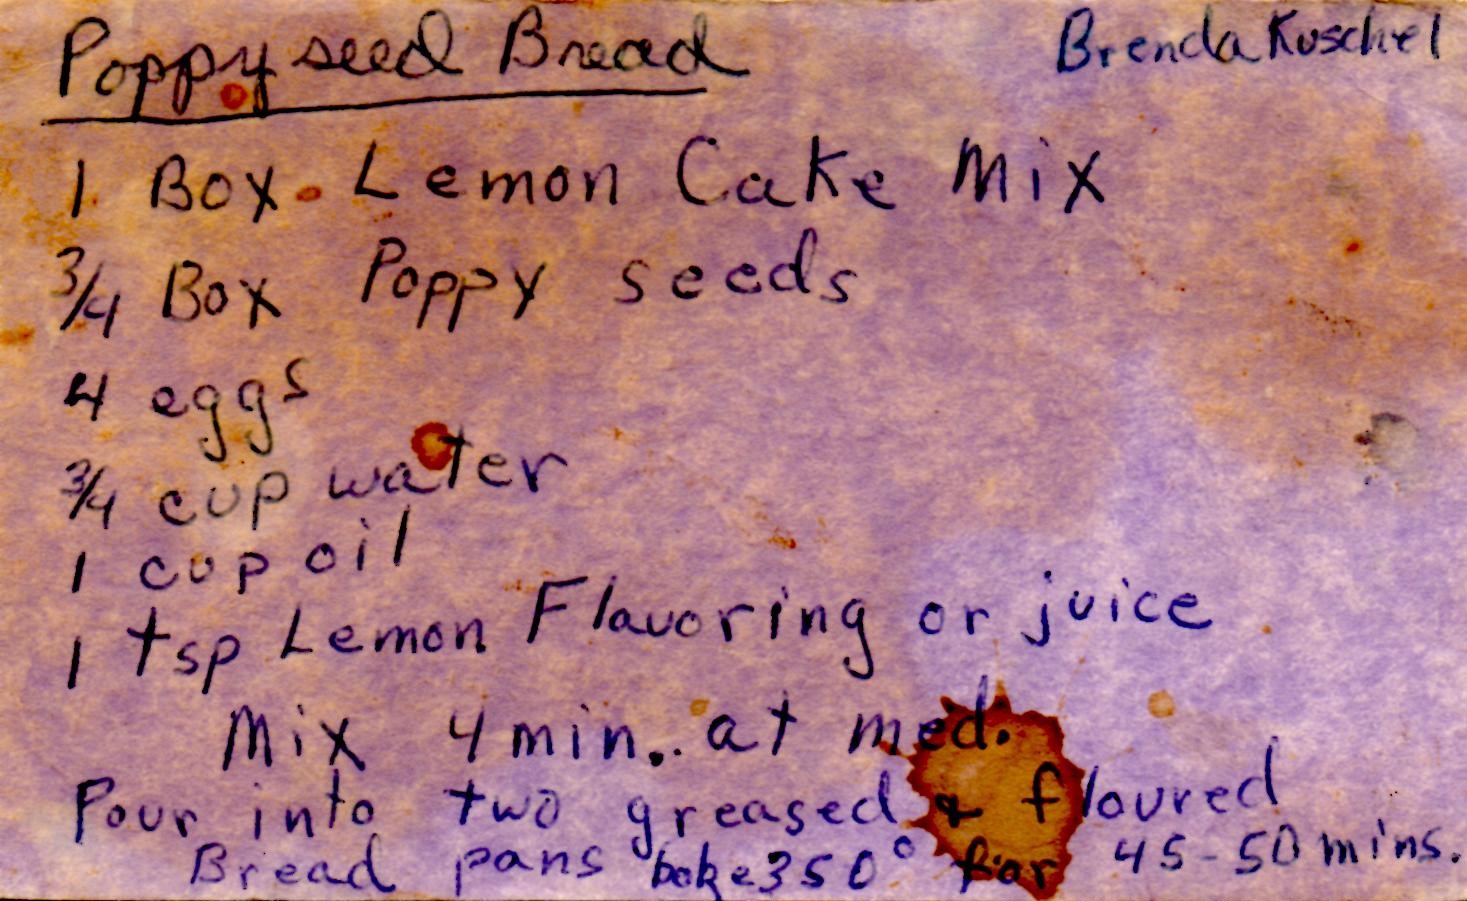 Poppyseed Bread
Brenda Kuschel
1 Box Lemon Cake Mix
3/4 Box Poppy seeds
4 eggs
3/4 cup water
1 cup oil
1 tsp Lemon Flavoring or juice
Mix 4 min. at med.
Pour into two greased & floured
Bread pans bake 350° for 45-50 mins.